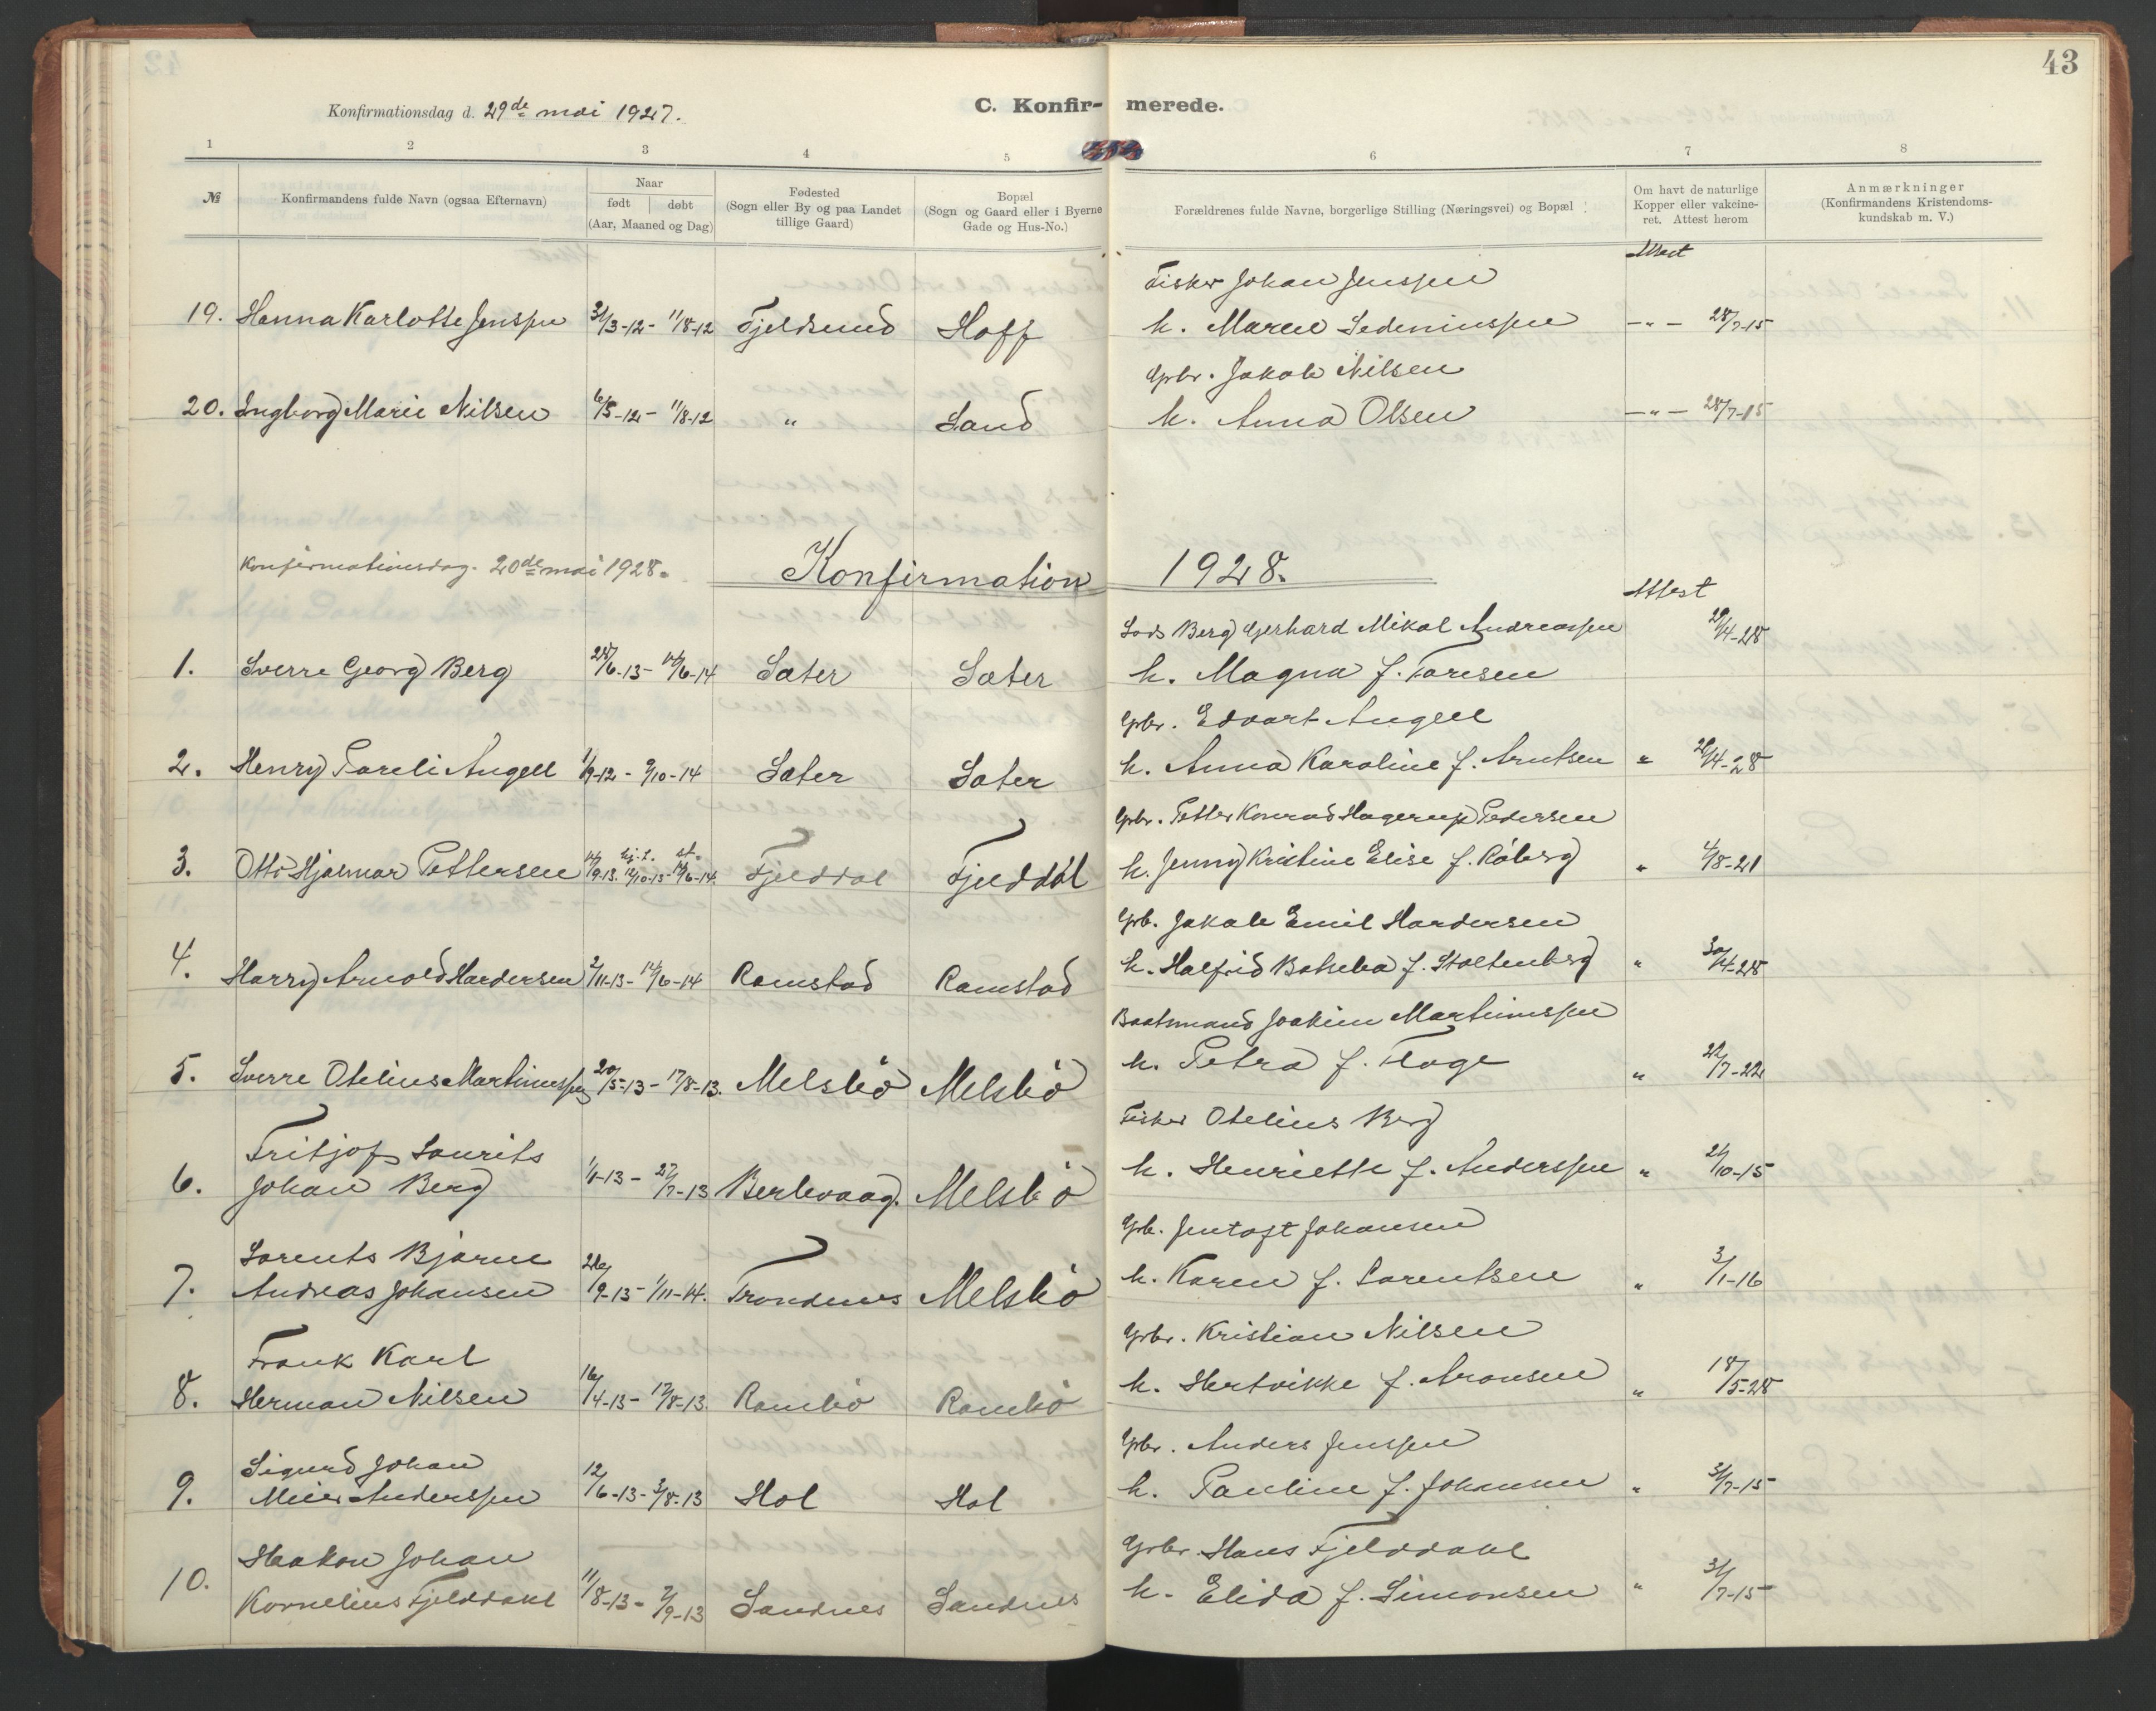 43
Konfirmationsdag d. 29de mai 1927.
C. Konfir- merede.
1 2 3 4 5 6 7 8
№
Konfirmandens fulde Navn (ogsaa Efternavn)
Naar
født | døbt
(Aar, Maaned og Dag)
Fødested
(Sogn eller By og paa Landet
tillige Gaard)
Bopæl
(Sogn og Gaard eller i Byerne
Gade og Hus-No.)
Forældrenes fulde Navne, borgerlige Stilling (Næringsvei) og Bopæl
Om havt de naturlige
Kopper eller vakcine-
ret. Attest herom
Anmærkninger
(Konfirmandens Kristendoms-
kundskab m. V.)
Attest
Fisker Johan Jenssen
19. Hanna Karlotte Jenssen 31/3-12 - 11/8-12 Fjeldsund Hoff h. Maren Sedeniussen -"- 28/7-15
Gbr. Jakob Nilsen
20. Ingborg Marie Nilsen 6/5-12 - 11/8-12 " Sand h. Anna Olsen -"- 28/7-15
Konfirmationsdag. 20de mai 1928. Konfirmation 1928.
Attest
Lods Berg Gerhard Mikal Andreassen 29/4-28
1. Sverre Georg Berg 28/6-13 - 14/6-14 Sæter Sæter h. Magna f. Taresen
Gbr. Edvart Angell
2. Henry Pareli Angell 1/9-12 - 9/10-14 Sæter Sæter h. Anna Karoline f. Arntsen " 29/4-28
Gbr. Petter Konrad Hagerup Pedersen
3. Otto Hjalmar Pettersen 14/9-13. hj.d. 12/10-13 - st. 14/6-14. Fjelddal Fjelddal h. Jenny Kristine Elise f. Råberg " 4/8-21
Gb. Jakob Emil Hardersen
4. Harry Arnold Hardersen 2/11-13 - 14/6-14 Ramstad Ramstad h. Halfrid Batseba f. Stoltenberg " 30/4-28
Baatsmand Joakim Martinussen
5. Sverre Otelius Martinussen 20/5-13 - 17/8-13. Melsbö Melsbö h. Petra f. Hage " 22/7-22
Fisker Otelius Berg
6. Fritjof Laurits
Johan Berg 1/1-13 - 27/7-13 Berlevaag. Melsbö h. Henriette f. Anderssen " 21/10-15
Gb. Jentoft Johansen
7. Lorents Bjarne
Andreas Johansen 26/9-13 - 1/11-14. Trondenes Melsbö h. Karen f. Lorentsen " 3/1-16
Gbr. Kristian Nilsen
8. Frank Karl
Herman Nilsen 16/4-13 - 17/8-13. Rambö Rambö h. Hertvikke f. Aronsen " 18/5-28
Gbr. Anders Jenssen
9. Sigurd Johan
Meier Anderssen 12/6-13 - 3/8-13 Hol Hol h. Pauline f. Johansen " 31/7-15
Gbr. Hans Fjelddahl
10. Haakon Johan
Kornelius Fjelddahl 11/8-13 - 7/9-13 Sandnes Sandnes h. Elida f. Simonsen " 31/7-15